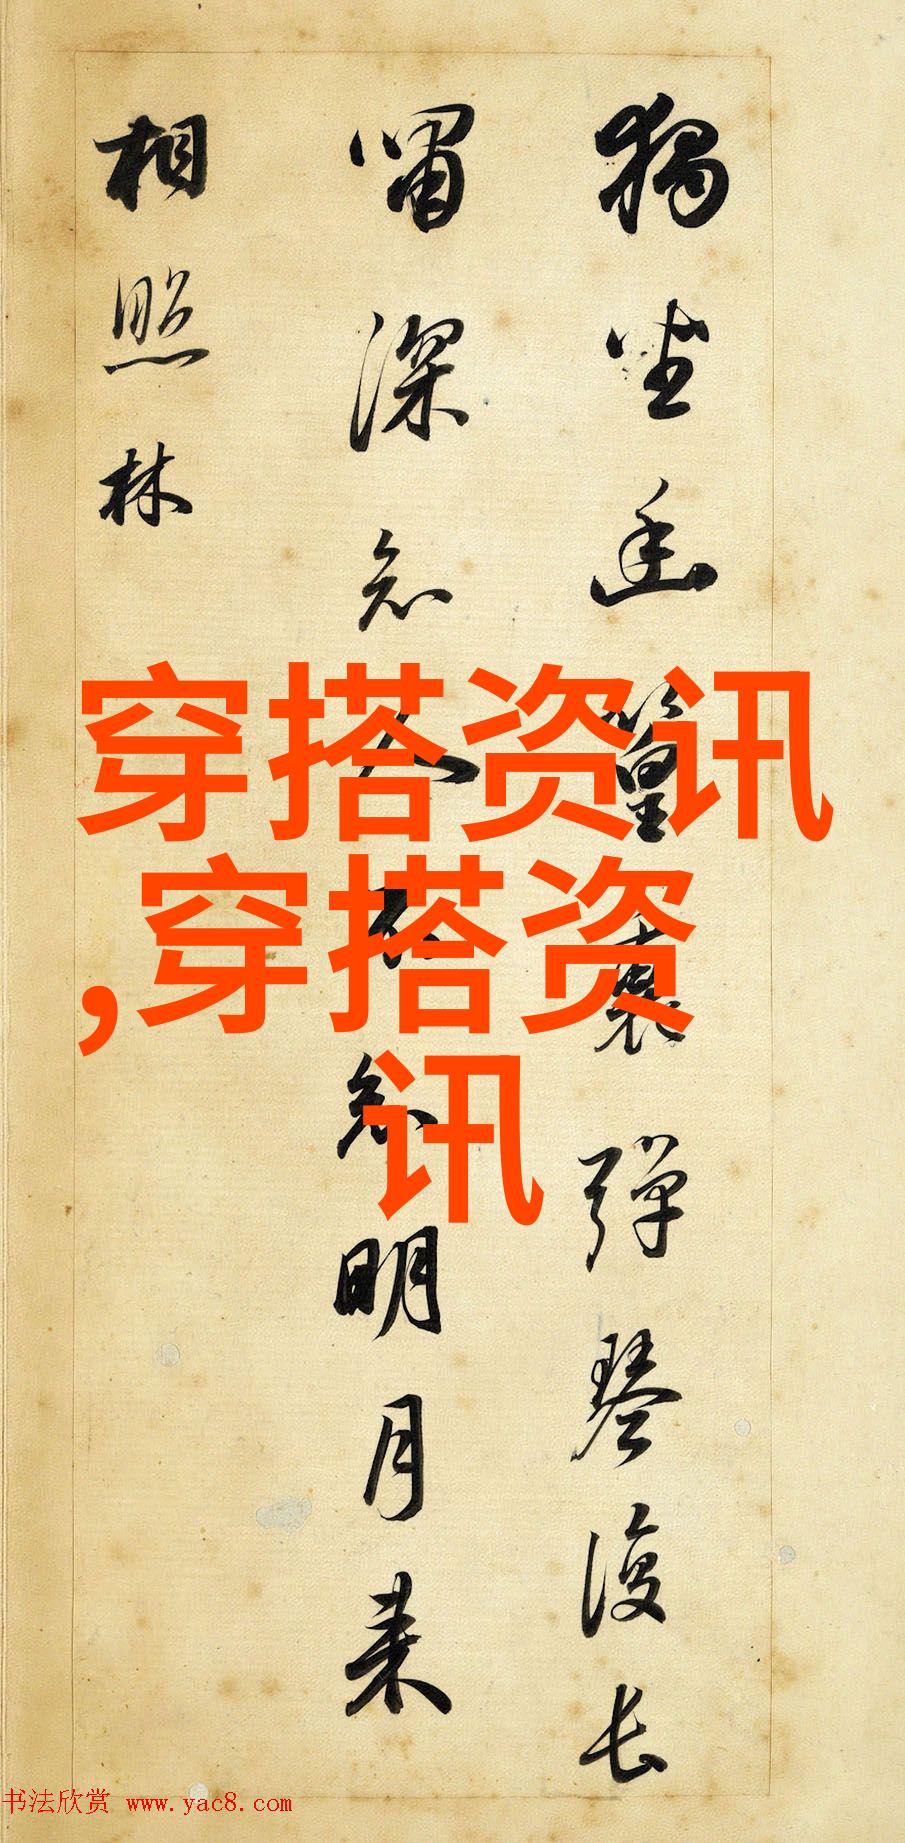 獨坐幽篁裏彈琴復長
嘯深知人不知明月来
相照林
穿搭资讯
,穿搭资
讯
书法欣赏 www.yac8.com